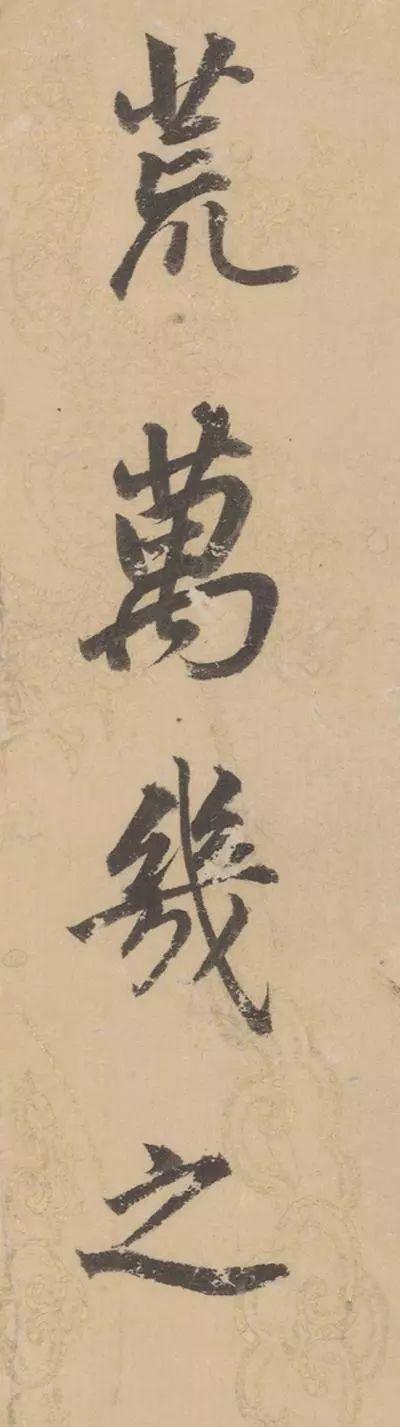 荒萬幾之